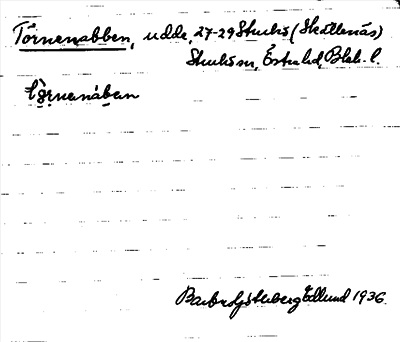 Törnenabben, udde, 27-29 Sturkö (Skällenäs)
Sturkö sn, Östra hd, Blek. l.
tö̀rnenában
Barbro Götheberg Edlund 1936.